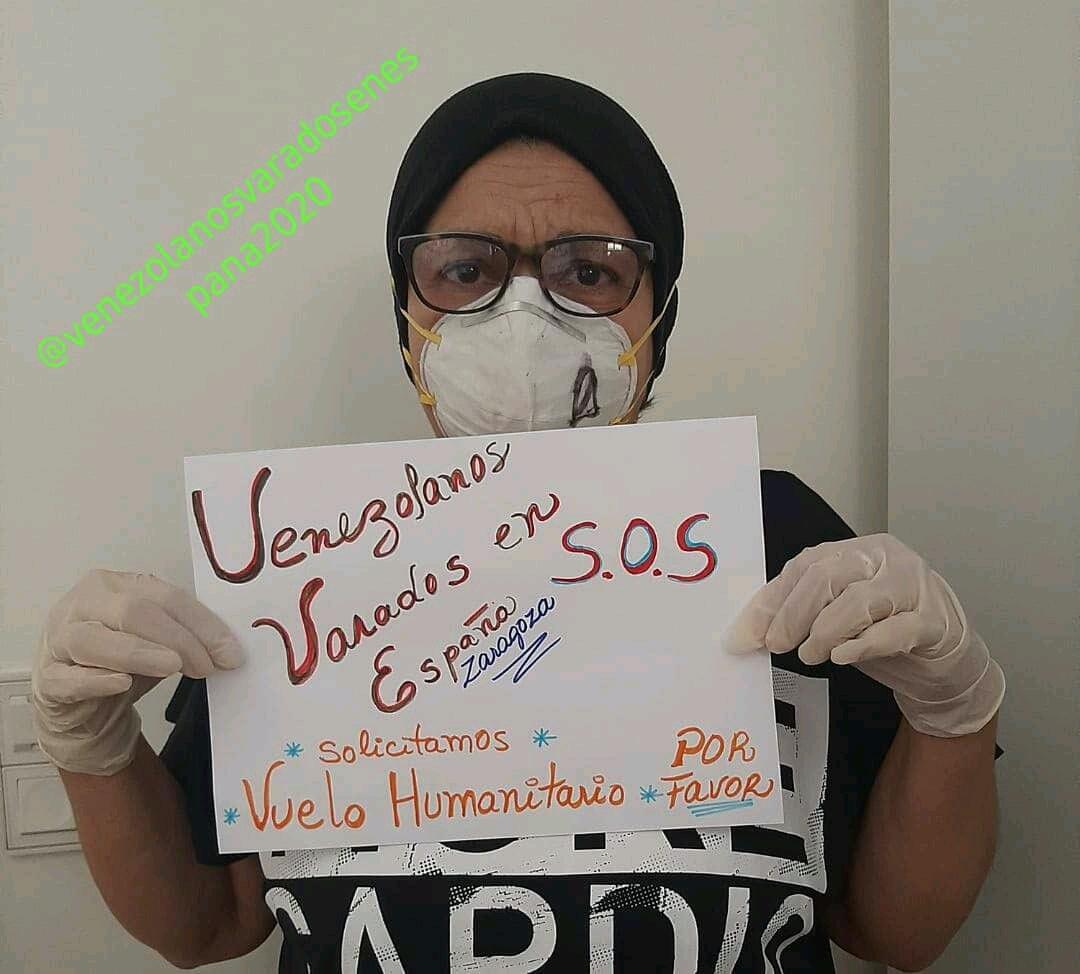 @venezolanosvaradosenes
pana2020
Venezolanos
Varados en
España
Zaragoza
S.O.S
* Solicitamos *
* Vuelo Humanitario *
POR
FAVOR